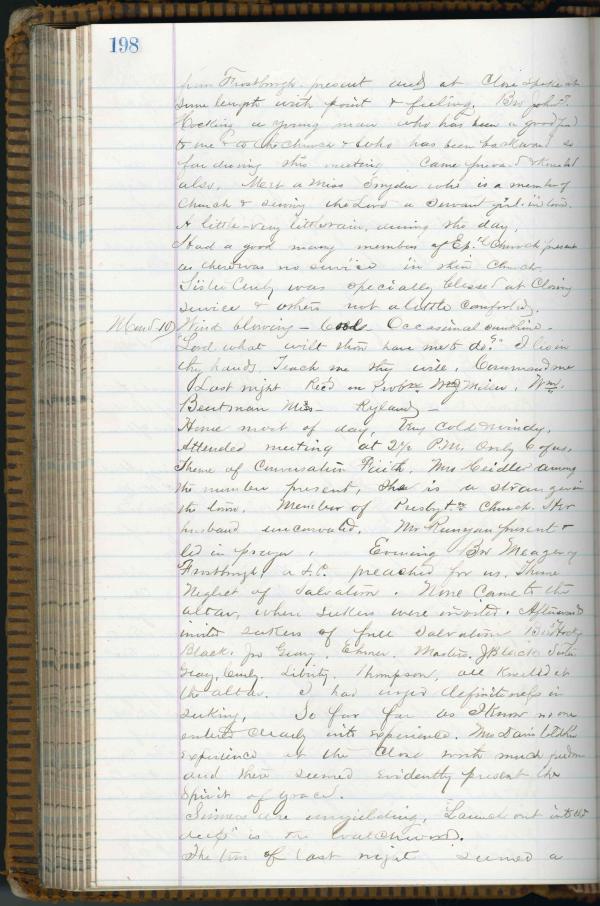 198
from Frostburgh present and at close spoke at
some length with point & feeling. Bro John T.
Hocking a young man who has been a good frd
to me & to the church & who has been backward so
far during this meeting came forwd & kneeled
also. Met a Miss Snyder who is a member of
Church & serving the Lord a servant girl in town.
A little very little rain, during the day.
Had a good many member of Ep. Church present
as there was no service in their Church.
Sister Cuely was specially blessed at closing
service & others not a little comforted.
Mond 10) Wind blowing - Cool. Occasional sunshine.
"Lord what wilt thou have me to do?" I lie in
thy hands. Teach me thy will. Command me
Last night Recd on Probn Miller. Wm.
Beutman Miss Ryland -
Home most of day, Very cold & windy.
Attended meeting at 2½ P.M. Only 6 of us.
Theme of Conversation Faith. Mrs Heidler among
the number present, She is a stranger in
the town. Member of Presbytn Church. Her
husband unconverted. Mr Runyan present &
led in prayer. Evening Bro Meager of
Frostburgh preached for us. Theme
Neglect of Salvation. None came to the
altar, where seekers were invited. Afterward
invited seekers of full Salvation
Black. Jno Geary, Elmer. Masters. J Black Sister
Geary, Cuely. Liberty. Thompson, all kneeled at
the altar. I had urged definiteness in
seeking, So far as I know no one
entered clearly into experience. Mrs Davis told her
experience at the close with much freedom
and there seemed evidently present the
Spirit of grace.
Sinners are unyielding, "Launch out into the
deep" is our watchword.
The tone of last night seemed a